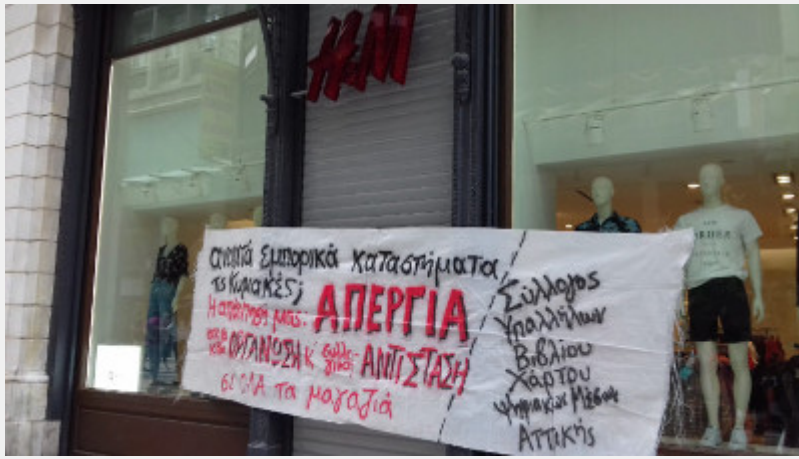 H&M
ανοιχτά εμπορικά καταστήματα
τις Κυριακές;
Η απάντηση μας: ΑΠΕΡΓΙΑ
ΟΡΓΑΝΩΣΗ κ' συλλο-
γική ΑΝΤΙΣΤΑΣΗ
σε ΟΛΑ τα μαγαζιά
Σύλλογος
Υπαλλήλων
Βιβλίου
Χάρτου
Ψηφιακών Μέσων
Αττικής